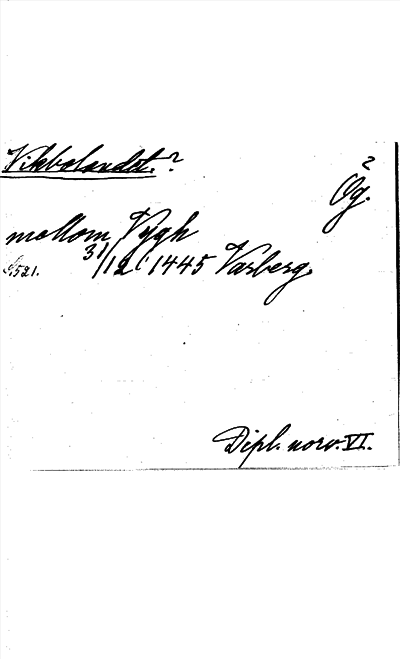 Vikbolandet.?
?
Ög.
mellom Vygh
s. 521. 31/12 1445 Varberg.
Dipl. norv. VI.